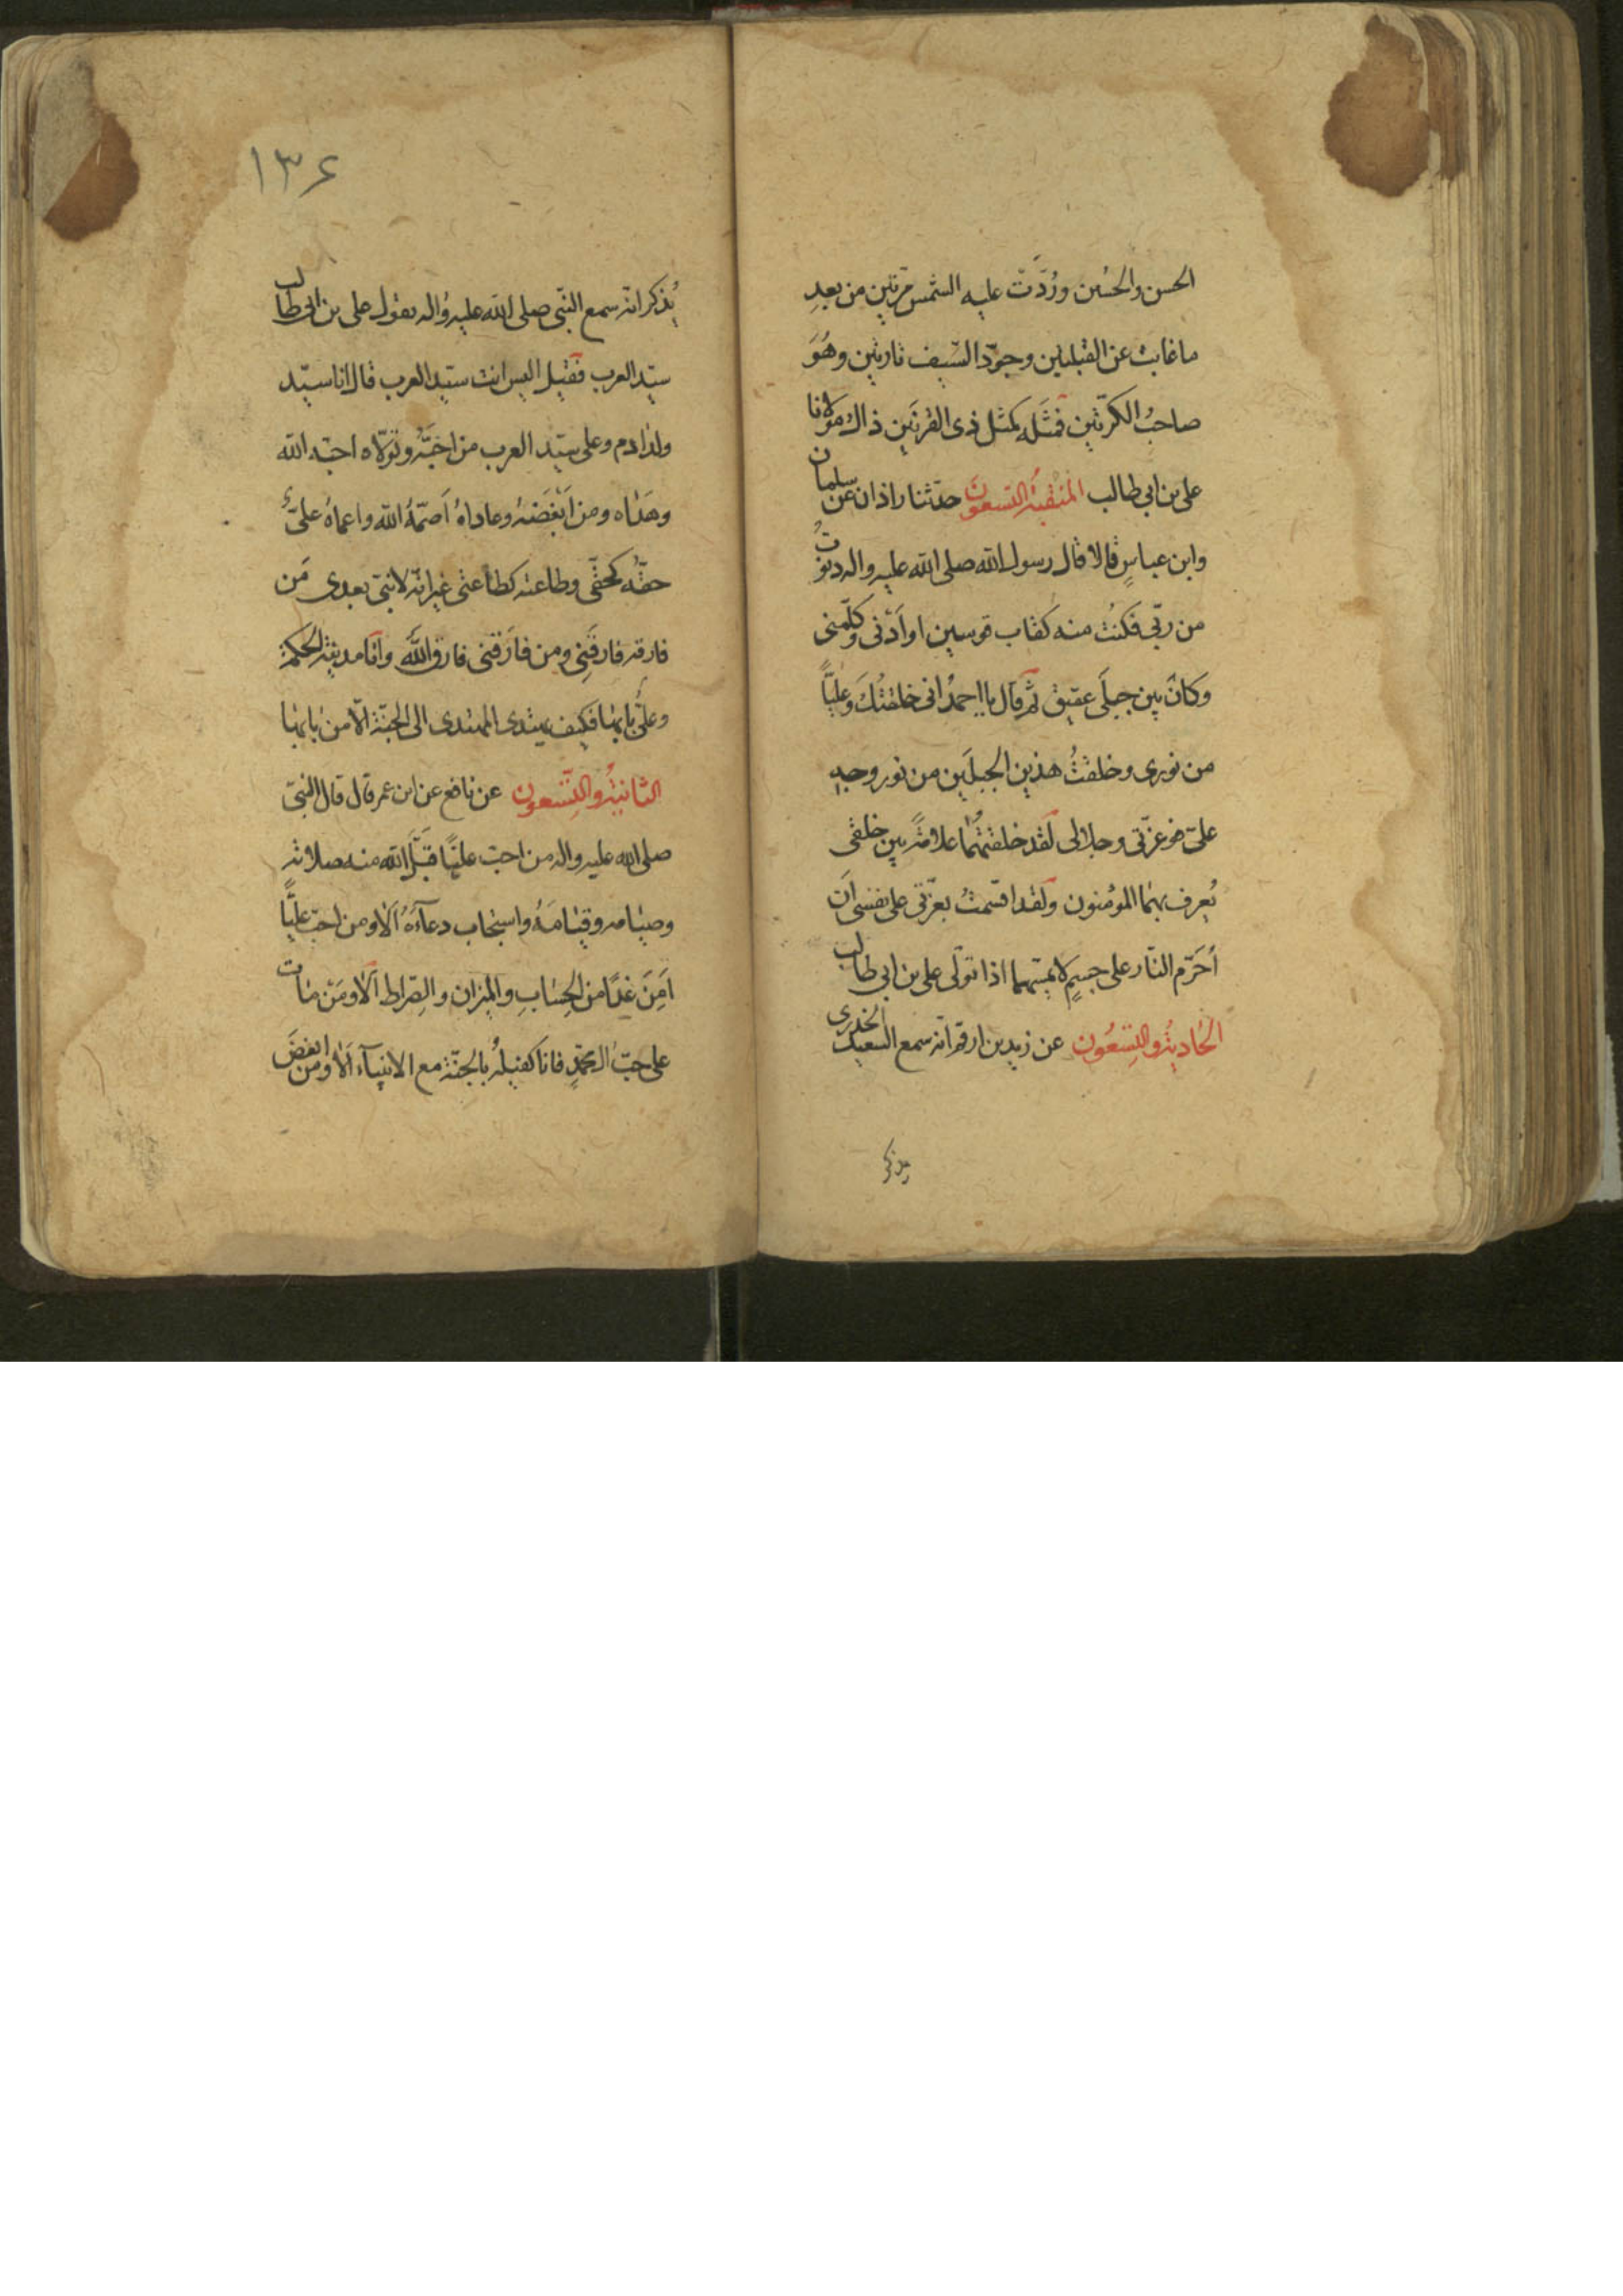 الحسن والحسين ورُدَّت عليه الشمس مرتين من بعدِ
ما غابت عن القبلتين وجرّد السّيف تارتين وهُوَ
صاحبُ الكرّتين فمَثَله كمثل ذى القرنَين ذاك مولانا
على بن ابي طالب المنقبة التسعونَ حدّثنا زاذان عن سلمان
وابن عباسٍ قالا قال رسول الله صلى الله عليه واله دنوتُ
من ربّي فكنتُ منه كقاب قوسين او اَدْنى وكلّمنى
وكان بين جبلَى عقيق ثم قال يا احمدُ انى خلقتُكَ وعليًّا
من نورى وخلقتُ هذين الجبلَين من نور وجه
علىّ فوعزّتى وجلالى لقد خلقتهُما علامةً بين خلقى
يُعرف بهما المؤمنون ولقد اقسمتُ بعزّتى على نفسى اَن
اُحَرّم النّار على جسمٍ لامسهما اذا تولّى على بن ابي طالب
الحٰاديةُ والتِسْعُون عن زيد بن ارقم انّه سمع السعيد الخدرى
يذكر
١٣٤
يُذكر انّه سمع النّبى صلى الله عليه واله يقول على بن ابى طالب
سيّد العرب فقيل اليس انت سيّد العرب قال انا سيّد
ولد ادم وعلى سيّد العرب من احَبَّهُ وتولّاه احبّه الله
وهَدٰاه ومن اَبْغَضَهُ وعاداهُ اَصَمّهُ الله واعماهُ علىٌّ
حقّهُ كحقّى وطاعته كطاعتى غير انّه لا نبىّ بعدى مَن
فارقه فارقَنِى ومن فارَقنِى فارق اللّٰه وانَا مدينة الحكمة
وعلىٌّ بابها فكيف يهتدى المهتدى الى الجنّة الّا من بابها
الثانيةُ والتِّسعون عن نافع عن ابن عمر قال قال النبىّ
صلى الله عليه واله من احبّ عليًّا قَبَّل الله منه صلاته
وصيٰامه وقيٰامَهُ واستجاب دعآءَهُ اَلا ومن احبّ عليًّا
اَمِنَ غدًا من الحِسٰابِ والميزان والصِّراط اَلٰا ومَن مٰات
على حبّ ال محمّدٍ فانَا كفيلهُ بالجنّة مع الانبيآء اَلٰا ومن ابغضَ